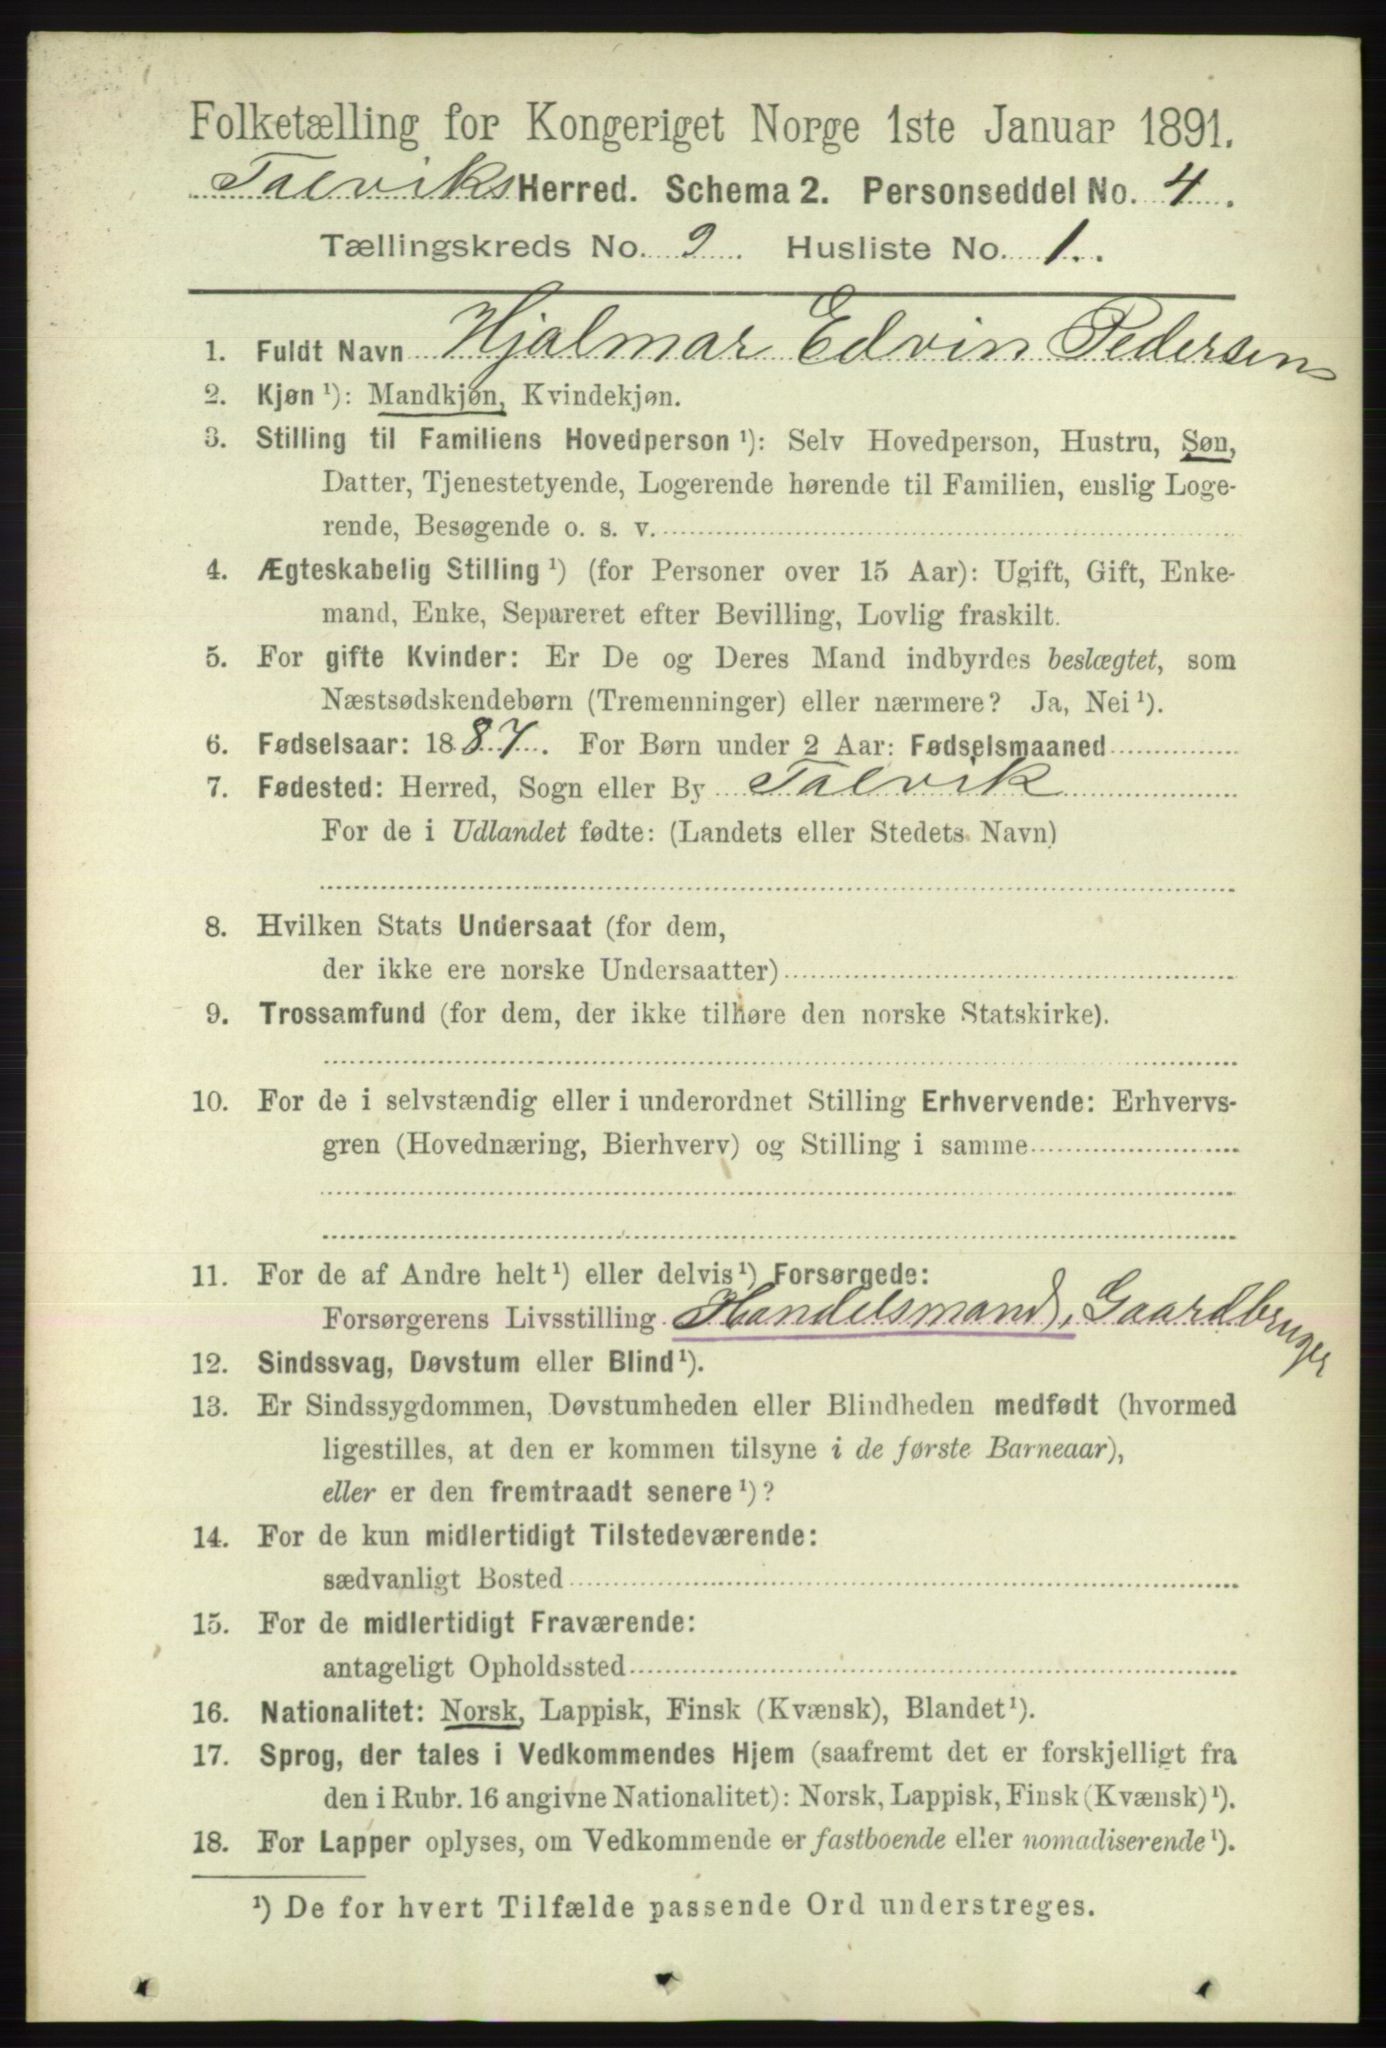 Folketælling for Kongeriget Norge 1ste Januar 1891.
Talviks Herred. Schema 2. Personseddel No. 4.
Tællingskreds No. 2. Husliste No. 1.
1. Fuldt Navn Hjalmar Edvin Pedersen
2. Kjøn ¹): Mandkjøn, Kvindekjøn.
3. Stilling til Familiens Hovedperson ¹): Selv Hovedperson, Hustru, Søn,
Datter, Tjenestetyende, Logerende hørende til Familien, enslig Loge-
rende, Besøgende o. s. v.
4. Ægteskabelig Stilling ¹) (for Personer over 15 Aar): Ugift, Gift, Enke-
mand, Enke, Separeret efter Bevilling, Lovlig fraskilt.
5. For gifte Kvinder: Er De og Deres Mand indbyrdes beslægtet, som
Næstsødskendebørn (Tremenninger) eller nærmere? Ja, Nei ¹).
6. Fødselsaar: 1887. For Børn under 2 Aar: Fødselsmaaned
7. Fødested: Herred, Sogn eller By Talvik
For de i Udlandet fødte: (Landets eller Stedets Navn)
8. Hvilken Stats Undersaat (for dem,
der ikke ere norske Undersaatter)
9. Trossamfund (for dem, der ikke tilhøre den norske Statskirke).
10. For de i selvstændig eller i underordnet Stilling Erhvervende: Erhvervs-
gren (Hovednæring, Bierhverv) og Stilling i samme
11. For de af Andre helt ¹) eller delvis ¹) Forsørgede:
Forsørgerens Livsstilling Handelsmand, Gaardbruger
12. Sindssvag, Døvstum eller Blind ¹).
13. Er Sindssygdommen, Døvstumheden eller Blindheden medfødt (hvormed
ligestilles, at den er kommen tilsyne i de første Barneaar),
eller er den fremtraadt senere ¹)?
14. For de kun midlertidigt Tilstedeværende:
sædvanligt Bosted
15. For de midlertidigt Fraværende:
antageligt Opholdssted
16. Nationalitet: Norsk, Lappisk, Finsk (Kvænsk), Blandet ¹).
17. Sprog, der tales i Vedkommendes Hjem (saafremt det er forskjelligt fra
den i Rubr. 16 angivne Nationalitet): Norsk, Lappisk, Finsk (Kvænsk) ¹).
18. For Lapper oplyses, om Vedkommende er fastboende eller nomadiserende ¹).
¹) De for hvert Tilfælde passende Ord understreges.